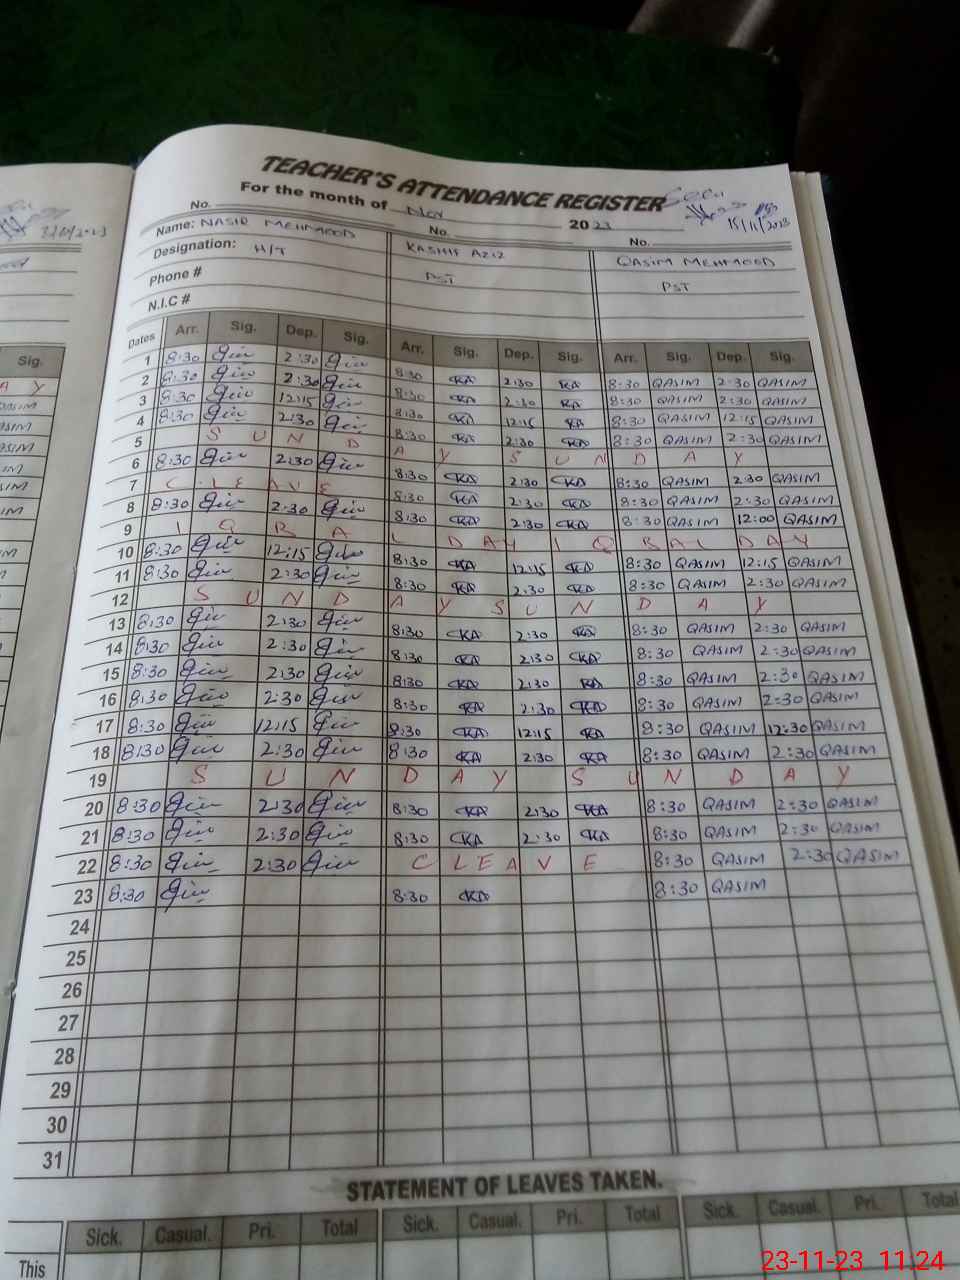 TEACHER'S ATTENDANCE REGISTER
For the month of Nov 2023
15/11/2023
No. No. No.
Name: NASIR MEHMOOD KASHIF AZIZ QASIM MEHMOOD
Designation: H/T PST PST
Phone #
N.I.C #
Dates Arr. Sig. Dep. Sig. Arr. Sig. Dep. Sig. Arr. Sig. Dep. Sig.
1 8:30 2:30 8:30 KA 2:30 KA 8:30 QASIM 2:30 QASIM
2 8:30 2:30 8:30 KA 2:30 KA 8:30 QASIM 2:30 QASIM
3 8:30 12:15 8:30 KA 12:15 KA 8:30 QASIM 12:15 QASIM
4 8:30 2:30 8:30 KA 2:30 KA 8:30 QASIM 2:30 QASIM
5 SUNDAY SUNDAY
6 8:30 2:30 8:30 KA 2:30 KA 8:30 QASIM 2:30 QASIM
7 C LEAVE 8:30 KA 2:30 KA 8:30 QASIM 2:30 QASIM
8 8:30 2:30 8:30 KA 2:30 KA 8:30 QASIM 12:00 QASIM
9 IQBAL DAY IQBAL DAY
10 8:30 12:15 8:30 KA 12:15 KA 8:30 QASIM 12:15 QASIM
11 8:30 2:30 8:30 KA 2:30 KA 8:30 QASIM 2:30 QASIM
12 SUNDAY SUNDAY
13 8:30 2:30 8:30 KA 2:30 KA 8:30 QASIM 2:30 QASIM
14 8:30 2:30 8:30 KA 2:30 KA 8:30 QASIM 2:30 QASIM
15 8:30 2:30 8:30 KA 2:30 KA 8:30 QASIM 2:30 QASIM
16 8:30 2:30 8:30 KA 2:30 KA 8:30 QASIM 2:30 QASIM
17 8:30 12:15 8:30 KA 12:15 KA 8:30 QASIM 12:30 QASIM
18 8:30 2:30 8:30 KA 2:30 KA 8:30 QASIM 2:30 QASIM
19 SUNDAY SUNDAY
20 8:30 2:30 8:30 KA 2:30 KA 8:30 QASIM 2:30 QASIM
21 8:30 2:30 8:30 KA 2:30 KA 8:30 QASIM 2:30 QASIM
22 8:30 2:30 C LEAVE 8:30 QASIM 2:30 QASIM
23 8:30 8:30 KA 8:30 QASIM
24
25
26
27
28
29
30
31
STATEMENT OF LEAVES TAKEN.
Sick. Casual. Pri. Total Sick. Casual. Pri. Total Sick. Casual. Pri. Total
This
23-11-23 11.24